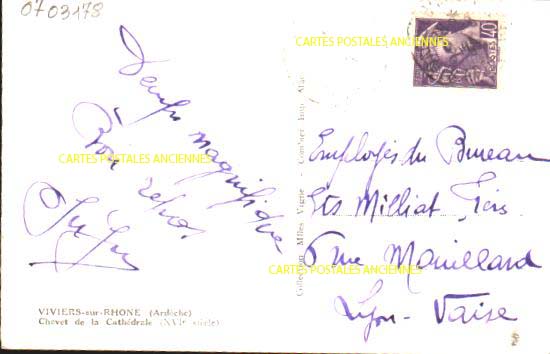 0703178
CARTES POSTALES ANCIENNES
40
POSTES
Temps magnifique
Bon repos
CARTES POSTALES ANCIENNES
Employés du Bureau
Ets Milliat Frères
6 rue Mouillard
Lyon-Vaise
CARTES POSTALES ANCIENNES
Collection Mlles Vigne - Combier Imp.
VIVIERS-sur-RHONE (Ardèche)
Chevet de la Cathédrale (XVIe siècle)